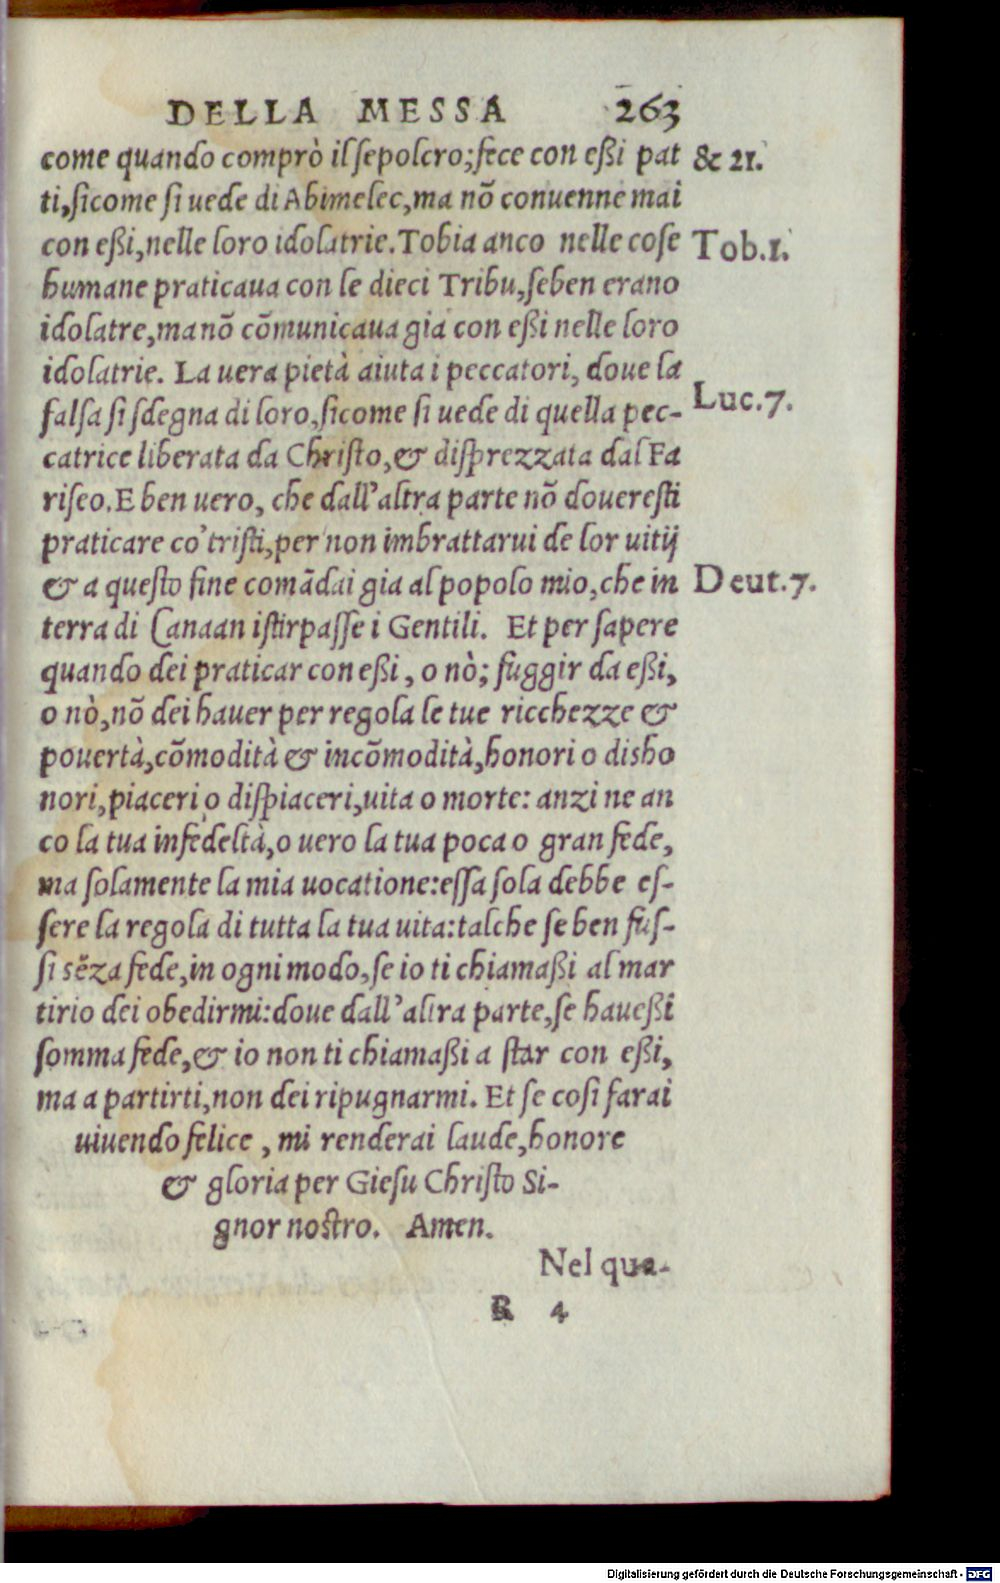 DELLA MESSA 263
come quando comprò il sepolcro; fece con eßi pat & 21.
ti, sicome si uede di Abimelec, ma nõ conuenne mai
con eßi, nelle loro idolatrie. Tobia anco nelle cose Tob. 1.
humane praticaua con le dieci Tribu, seben erano
idolatre, ma nõ cõmunicaua gia con eßi nelle loro
idolatrie. La uera pietà aiuta i peccatori, doue la
falsa si sdegna di loro, sicome si uede di quella pec- Luc. 7.
catrice liberata da Christo, & disprezzata dal Fa
riseo. E ben uero, che dall'altra parte nõ doueresti
praticare co' tristi, per non imbrattarui de lor uitij
& a questo fine comãdai gia al popolo mio, che in Deut. 7.
terra di Canaan istirpasse i Gentili. Et per sapere
quando dei praticar con eßi, o nò; fuggir da eßi,
o nò, nõ dei hauer per regola le tue ricchezze &
pouertà, cõmodità & incõmodità, honori o disho
nori, piaceri o dispiaceri, uita o morte: anzi ne an
co la tua infedeltà, o uero la tua poca o gran fede,
ma solamente la mia uocatione: essa sola debbe es-
sere la regola di tutta la tua uita: talche se ben fus-
si sẽza fede, in ogni modo, se io ti chiamaßi al mar
tirio dei obedirmi: doue dall'altra parte, se haueßi
somma fede, & io non ti chiamaßi a star con eßi,
ma a partirti, non dei ripugnarmi. Et se cosi farai
uiuendo felice, mi renderai laude, honore
& gloria per Giesu Christo Si-
gnor nostro. Amen.
Nel qua-
R 4
Digitalisierung gefördert durch die Deutsche Forschungsgemeinschaft - DFG